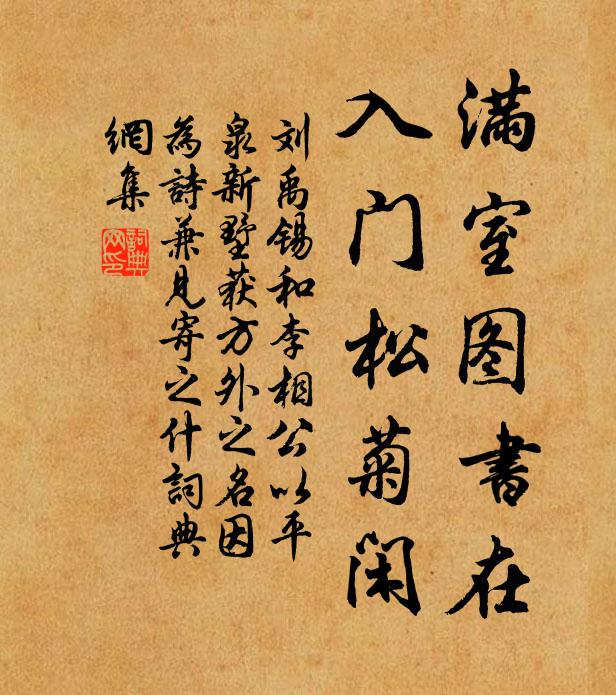 满室图书在
入门松菊闲
刘禹锡和李相公以平
泉新墅获方外之名因
為詩兼見寄之什詞典
網集
詞典
网印